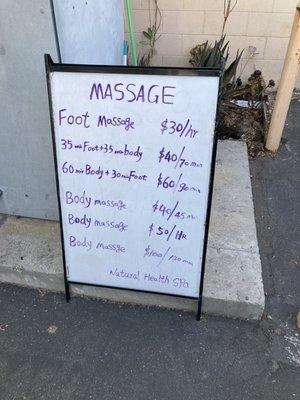 MASSAGE
Foot Massage $30/hr
35min Foot+35min body $40/70min
60min Body+30min Foot $60/90min
Body massage $40/45min
Body massage $50/HR
Body massage $100/120min
Natural Health Spa